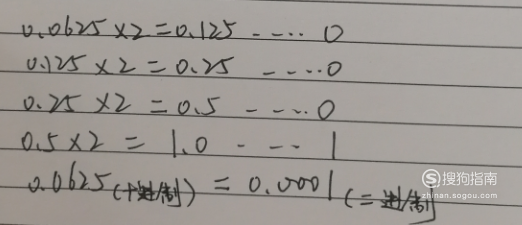 0.0625×2=0.125 ----- 0
0.125×2=0.25 ----0
0.25×2=0.5 ---- 0
0.5×2=1.0 - --- 1
0.0625(十进制)=0.0001(二进制)
搜狗指南
zhinan.sogou.com